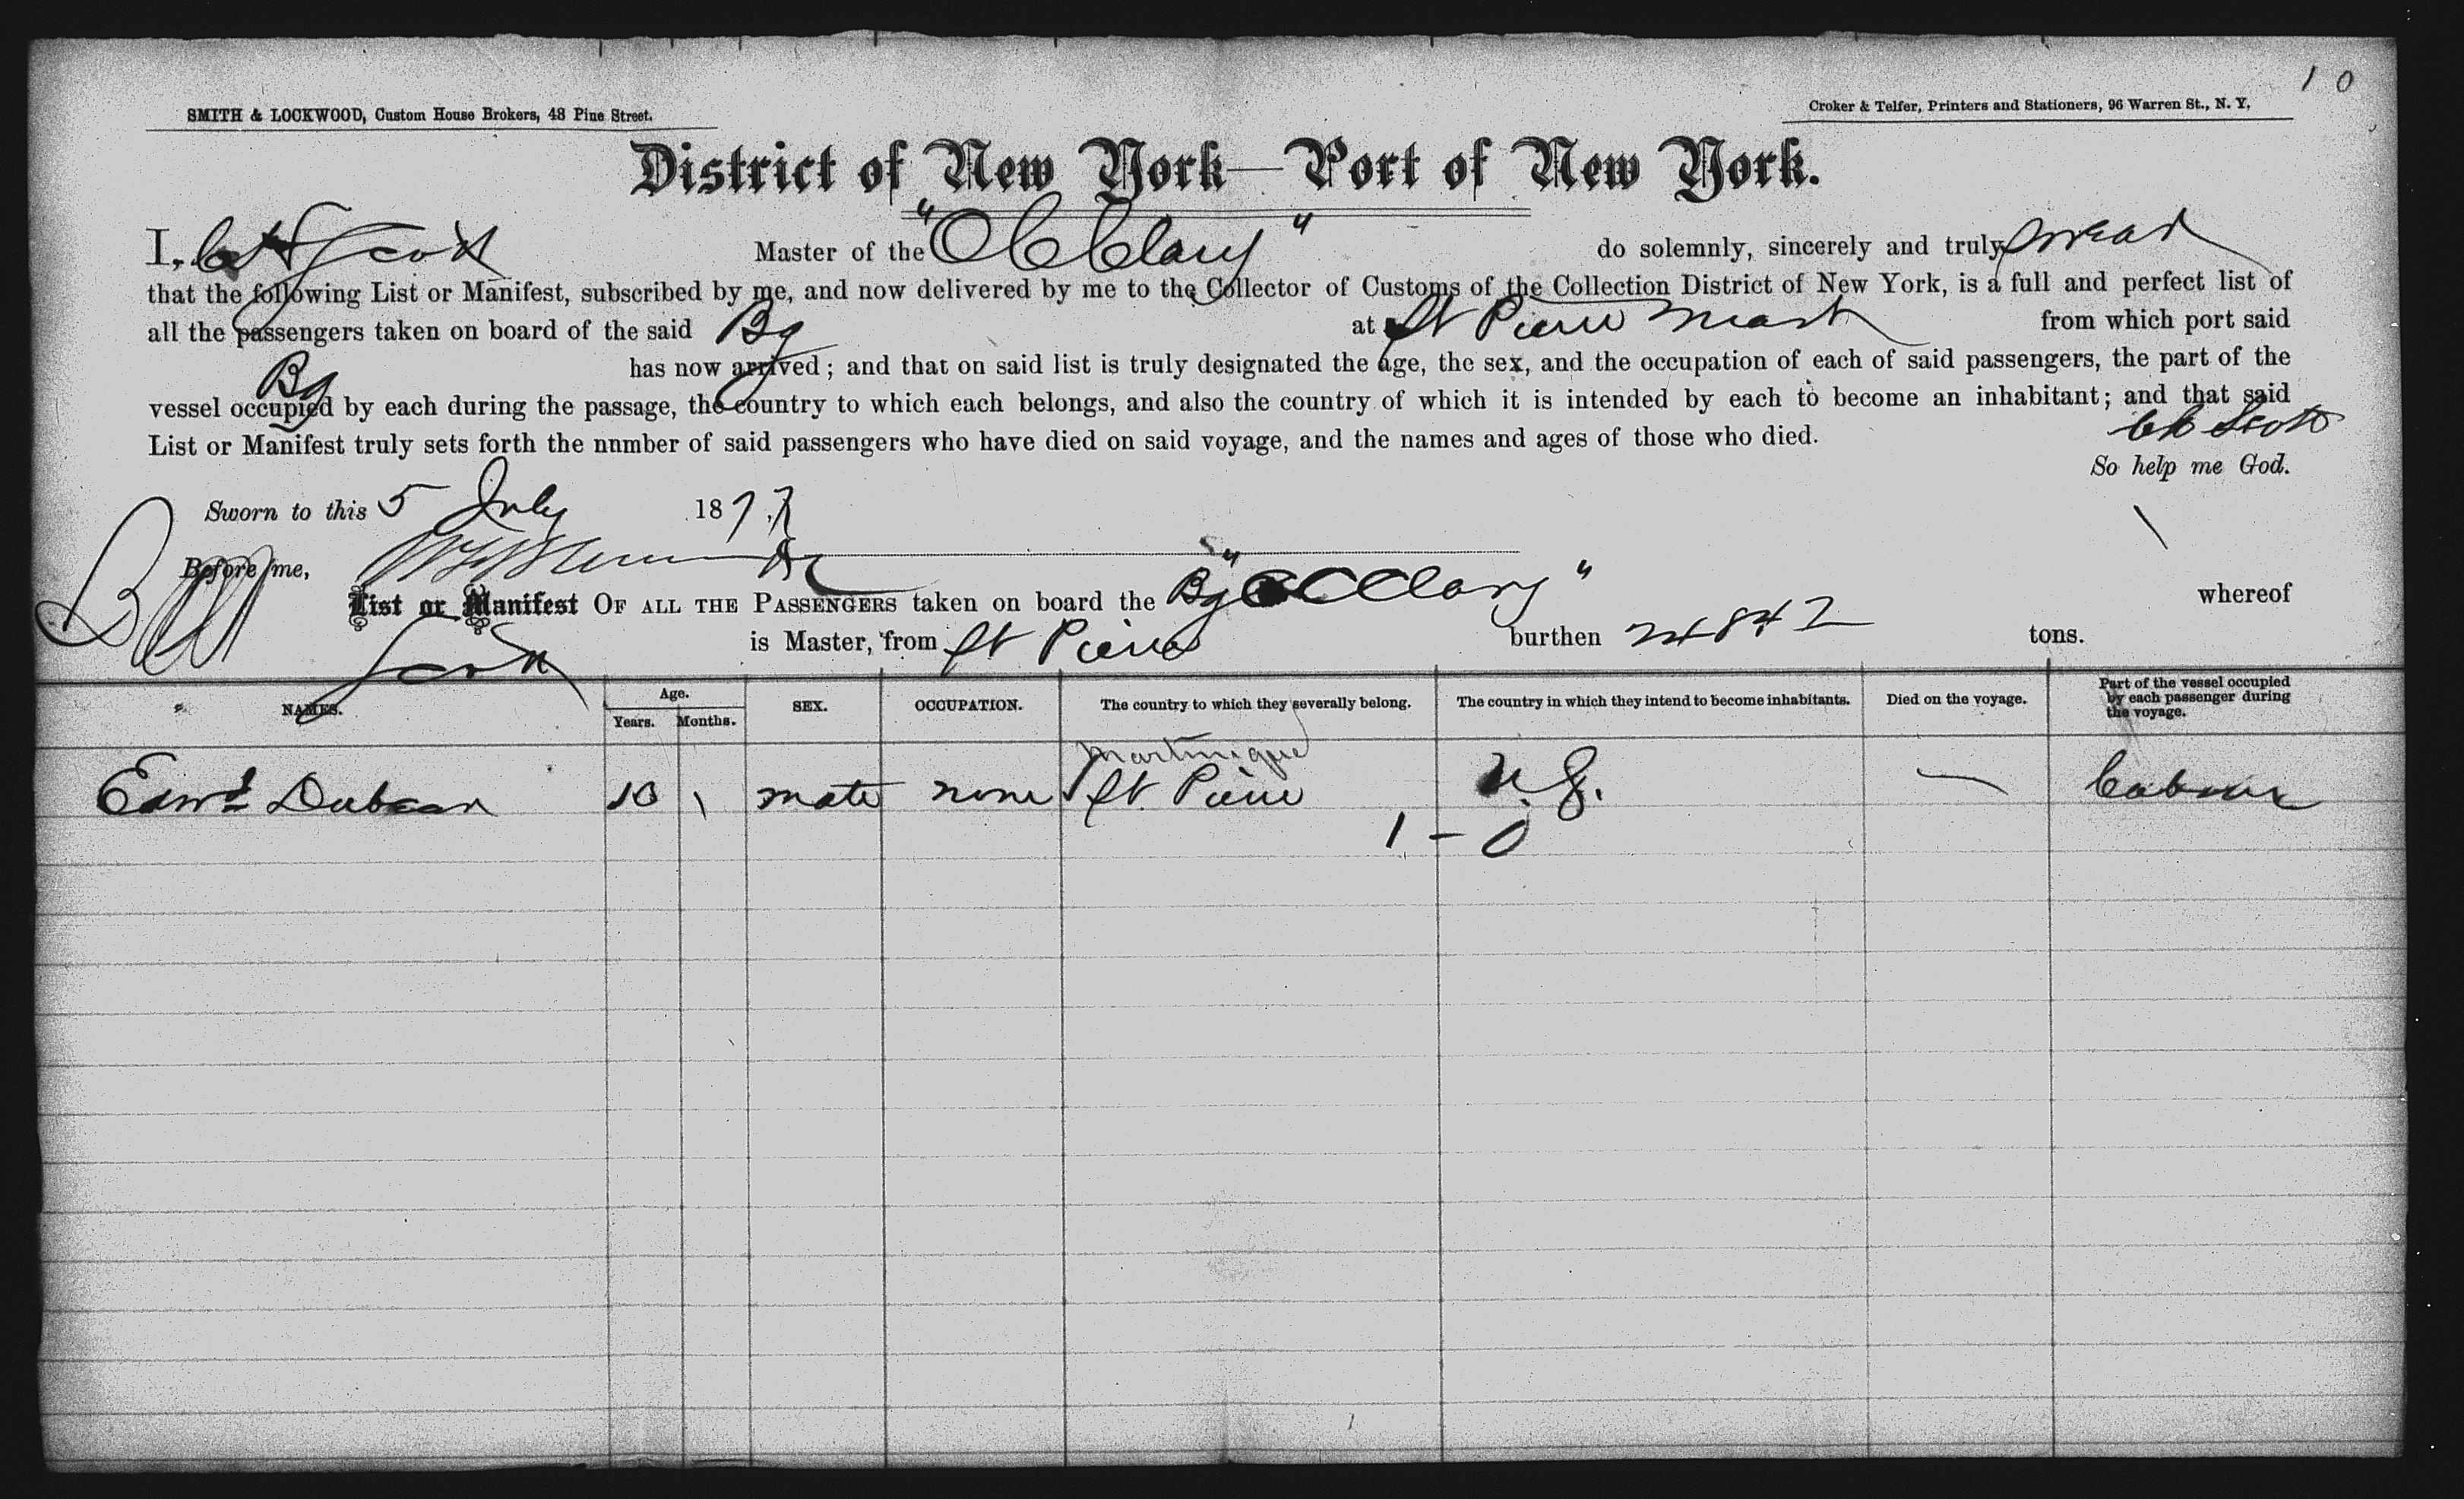 1 0
SMITH & LOCKWOOD, Custom House Brokers, 48 Pine Street.
Croker & Telfer, Printers and Stationers, 96 Warren St., N. Y,
District of New York—Port of New York.
I, Scott Master of the "O C Clary" do solemnly, sincerely and truly swear
that the following List or Manifest, subscribed by me, and now delivered by me to the Collector of Customs of the Collection District of New York, is a full and perfect list of
all the passengers taken on board of the said Bg at St Pierre Mart from which port said
Bg has now arrived; and that on said list is truly designated the age, the sex, and the occupation of each of said passengers, the part of the
vessel occupied by each during the passage, the country to which each belongs, and also the country of which it is intended by each to become an inhabitant; and that said
List or Manifest truly sets forth the nnmber of said passengers who have died on said voyage, and the names and ages of those who died.
Scott
So help me God.
Sworn to this 5 July 1877
Before me,
List or Manifest OF ALL THE PASSENGERS taken on board the Bg "O C Clary" whereof
Scott is Master, from St Pierre burthen 248 42 tons.
NAMES. Age. Years. Months. SEX. OCCUPATION. The country to which they severally belong. The country in which they intend to become inhabitants. Died on the voyage. Part of the vessel occupied by each passenger during the voyage.
Martinique
Edwd 10 male none St. Pierre U.S. — Cabin
1 - 0